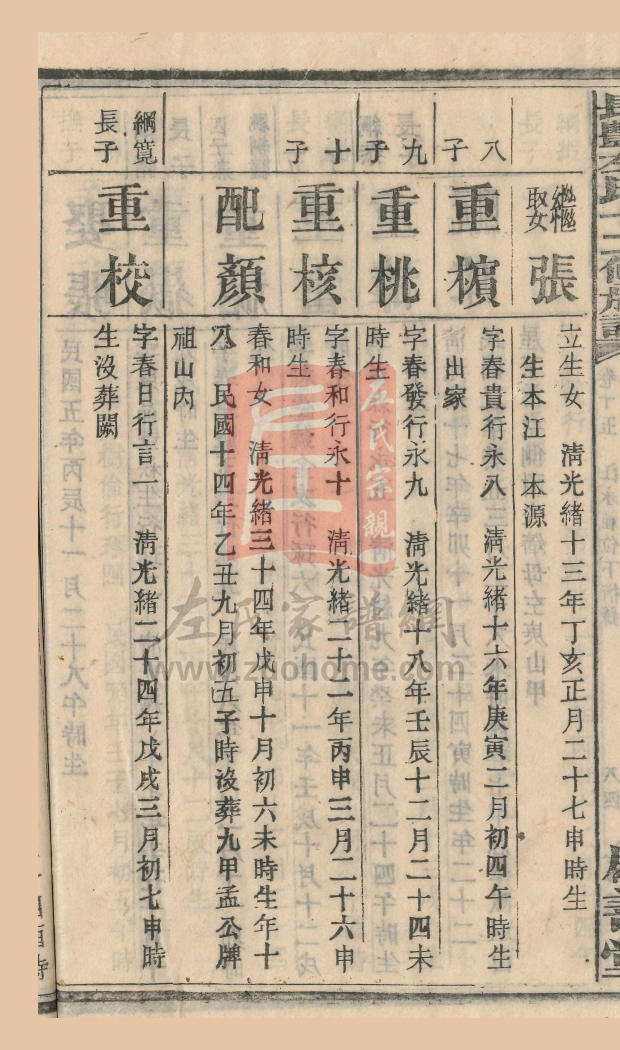 繼娶
張
立生女 清光緒十三年丁亥正月二十七申時生
生本江 本源
八子
重檳
字春貴行永八 清光緒十六年庚寅二月初四午時生
出家
九子
重桃
字春發行永九 清光緒十八年壬辰十二月二十四未
時生
十子
重核
字春和行永十 清光緒二十二年丙申三月二十六申
時生
配顏
春和女 清光緒三十四年戊申十月初六未時生年十
八 民國十四年乙丑九月初五子時沒葬九甲孟公牌
祖山內
綱寬長子
重校
字春日行言一 清光緒二十四年戊戌三月初七申時
生沒葬闕
左氏宗親
左氏家譜網
www.zuohome.com